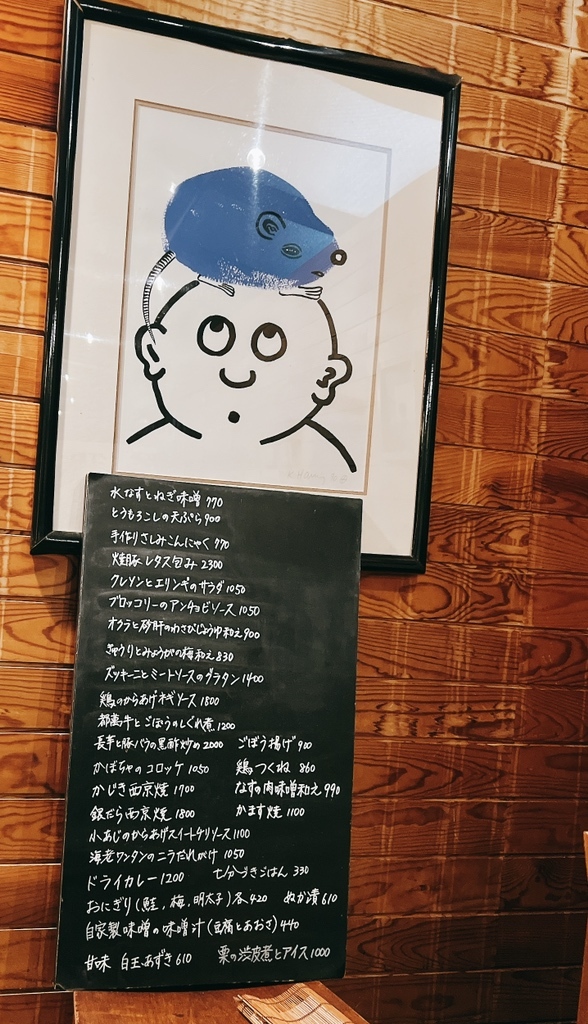 水なすとねぎ味噌 770
とうもろこしの天ぷら 900
手作りさしみこんにゃく 770
焼豚レタス包み 2300
クレソンとエリンギのサラダ 1050
ブロッコリーのアンチョビソース 1050
オクラと砂肝のわさびじょうゆ和え 900
きゅうりとみょうがの梅和え 830
ズッキーニとミートソースのグラタン 1400
鶏のからあげネギソース 1800
都萬牛とごぼうのしぐれ煮 1200
長芋と豚バラの黒酢炒め 2000 ごぼう揚げ 900
かぼちゃのコロッケ 1050 鶏つくね 860
かじき西京焼 1700 なすの肉味噌和え 990
銀だら西京焼 1800 かます焼 1100
小あじのからあげスイートチリソース 1100
海老ワンタンのニラだれがけ 1050
ドライカレー 1200 七分づきごはん 330
おにぎり(鮭、梅、明太子)各 420 ぬか漬 610
自家製味噌の味噌汁(豆腐とあおさ) 440
甘味 白玉あずき 610 栗の渋皮煮とアイス 1000